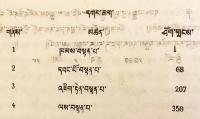 དཀར་ཆག
གནས་ མཚན་ ཤོག་གྲངས་
1 ཁམས་བསྟན་པ་ 1
2 དབང་པོ་བསྟན་པ་ 68
3 འཇིག་རྟེན་བསྟན་པ་ 207
4 ལས་བསྟན་པ་ 350